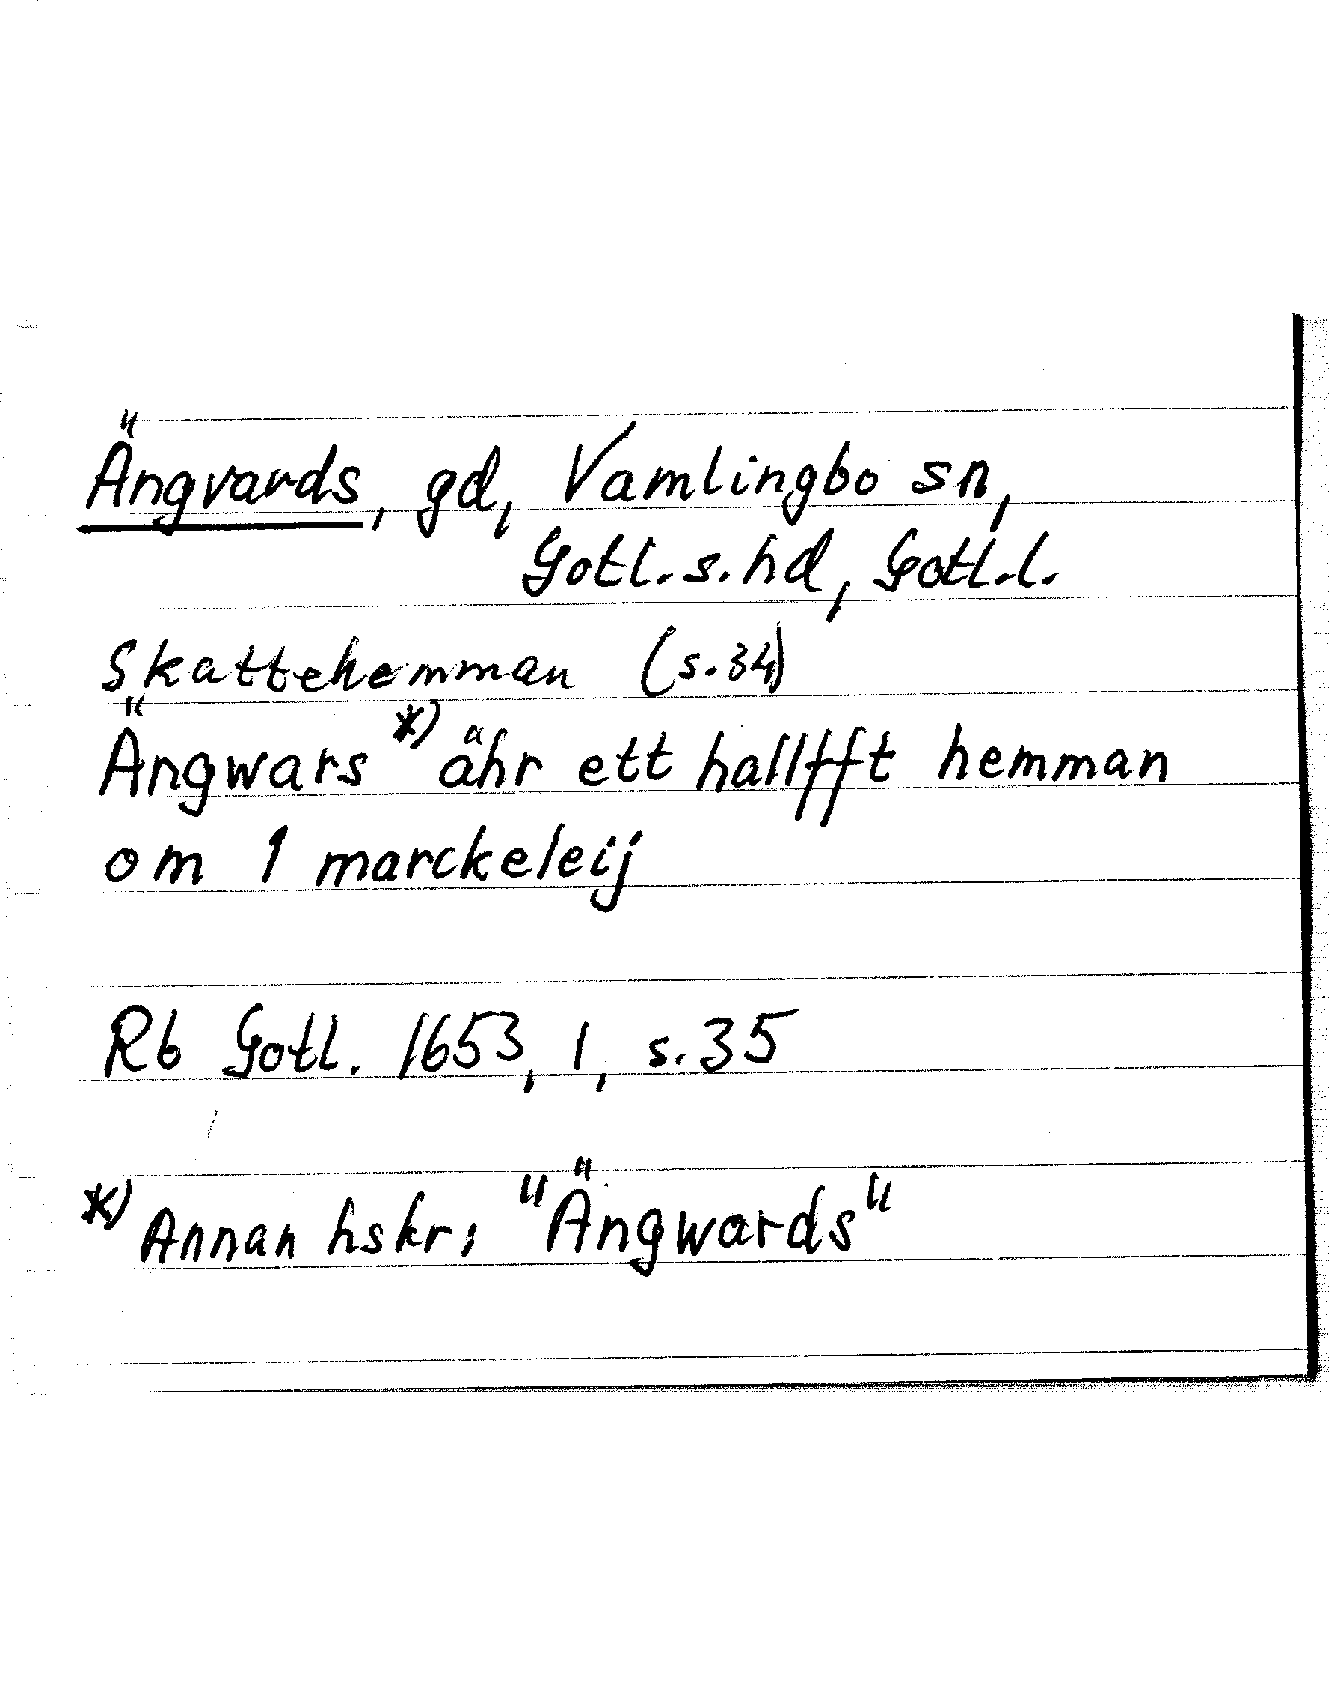 Ängvards, gd, Vamlingbo sn,
Gotl. s. hd, Gotl. l.
Skattehemman (s. 34)
Ängwars *) ähr ett hallfft hemman
om 1 marckeleij
Rb Gotl. 1653, 1, s. 35
*) Annan hskr: "Ängwards"